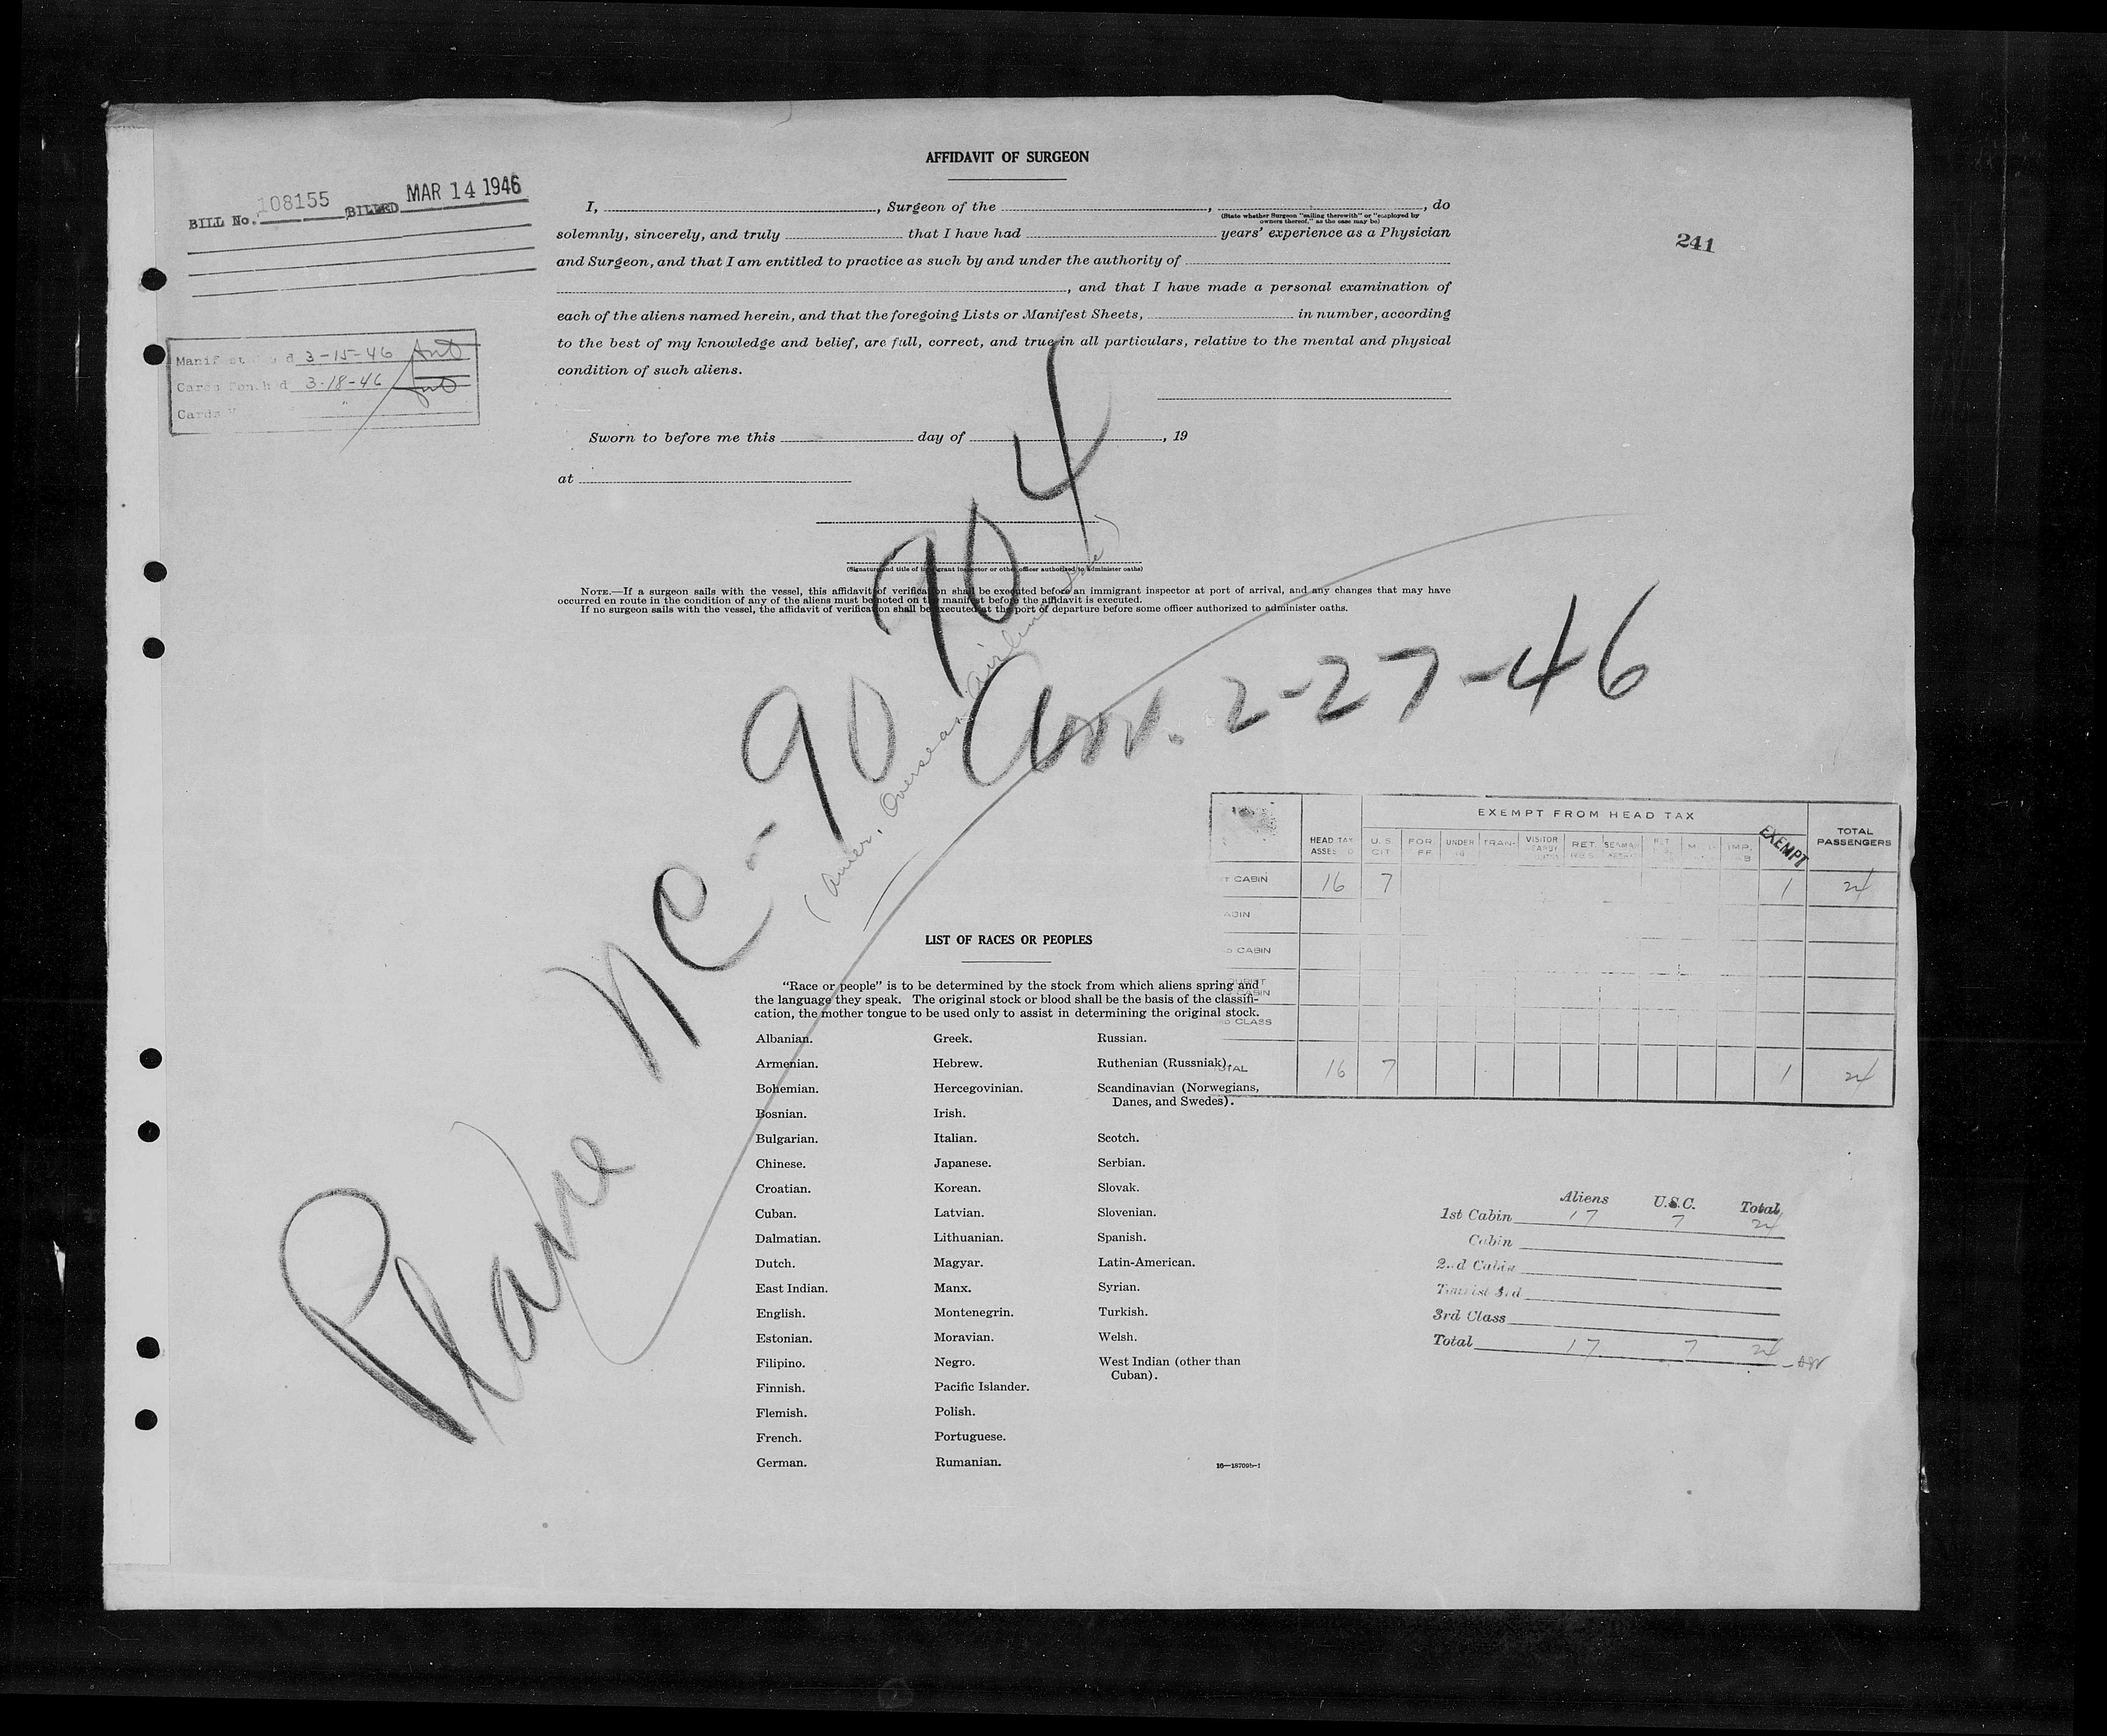 AFFIDAVIT OF SURGEON
BILL No. 108155 BILLED MAR 14 1946
241
I, , Surgeon of the , , do
(State whether Surgeon "sailing therewith" or "employed by
owners thereof," as the case may be)
solemnly, sincerely, and truly that I have had years' experience as a Physician
and Surgeon, and that I am entitled to practice as such by and under the authority of
, and that I have made a personal examination of
each of the aliens named herein, and that the foregoing Lists or Manifest Sheets, in number, according
to the best of my knowledge and belief, are full, correct, and true in all particulars, relative to the mental and physical
condition of such aliens.
Manifest 3-15-46
Cards 3-18-46
Cards "
Sworn to before me this day of , 19
at
(Signature and title of immigrant inspector or other officer authorized to administer oaths)
NOTE.—If a surgeon sails with the vessel, this affidavit of verification shall be executed before an immigrant inspector at port of arrival, and any changes that may have
occurred en route in the condition of any of the aliens must be noted on the manifest before the affidavit is executed.
If no surgeon sails with the vessel, the affidavit of verification shall be executed at the port of departure before some officer authorized to administer oaths.
Plane NC-90904
(Amer. Overseas Airlines
Arr. 2-27-46
EXEMPT FROM HEAD TAX
HEAD TAX U.S. FOR. UNDER TRAN- VISITOR RET. SEAMAN IMP. EXEMPT TOTAL
CIT. PASSENGERS
CABIN 16 7 1 24
CABIN
CABIN
CABIN
CLASS
TOTAL 16 7 1 24
LIST OF RACES OR PEOPLES
"Race or people" is to be determined by the stock from which aliens spring and
the language they speak. The original stock or blood shall be the basis of the classifi-
cation, the mother tongue to be used only to assist in determining the original stock.
Albanian. Greek. Russian.
Armenian. Hebrew. Ruthenian (Russniak).
Bohemian. Hercegovinian. Scandinavian (Norwegians,
Danes, and Swedes).
Bosnian. Irish.
Bulgarian. Italian. Scotch.
Chinese. Japanese. Serbian.
Croatian. Korean. Slovak.
Cuban. Latvian. Slovenian.
Dalmatian. Lithuanian. Spanish.
Dutch. Magyar. Latin-American.
East Indian. Manx. Syrian.
English. Montenegrin. Turkish.
Estonian. Moravian. Welsh.
Filipino. Negro. West Indian (other than
Cuban).
Finnish. Pacific Islander.
Flemish. Polish.
French. Portuguese.
German. Rumanian.
Aliens U.S.C. Total
1st Cabin 17 7 24
Cabin
2nd Cabin
Tourist 3rd
3rd Class
Total 17 7 24